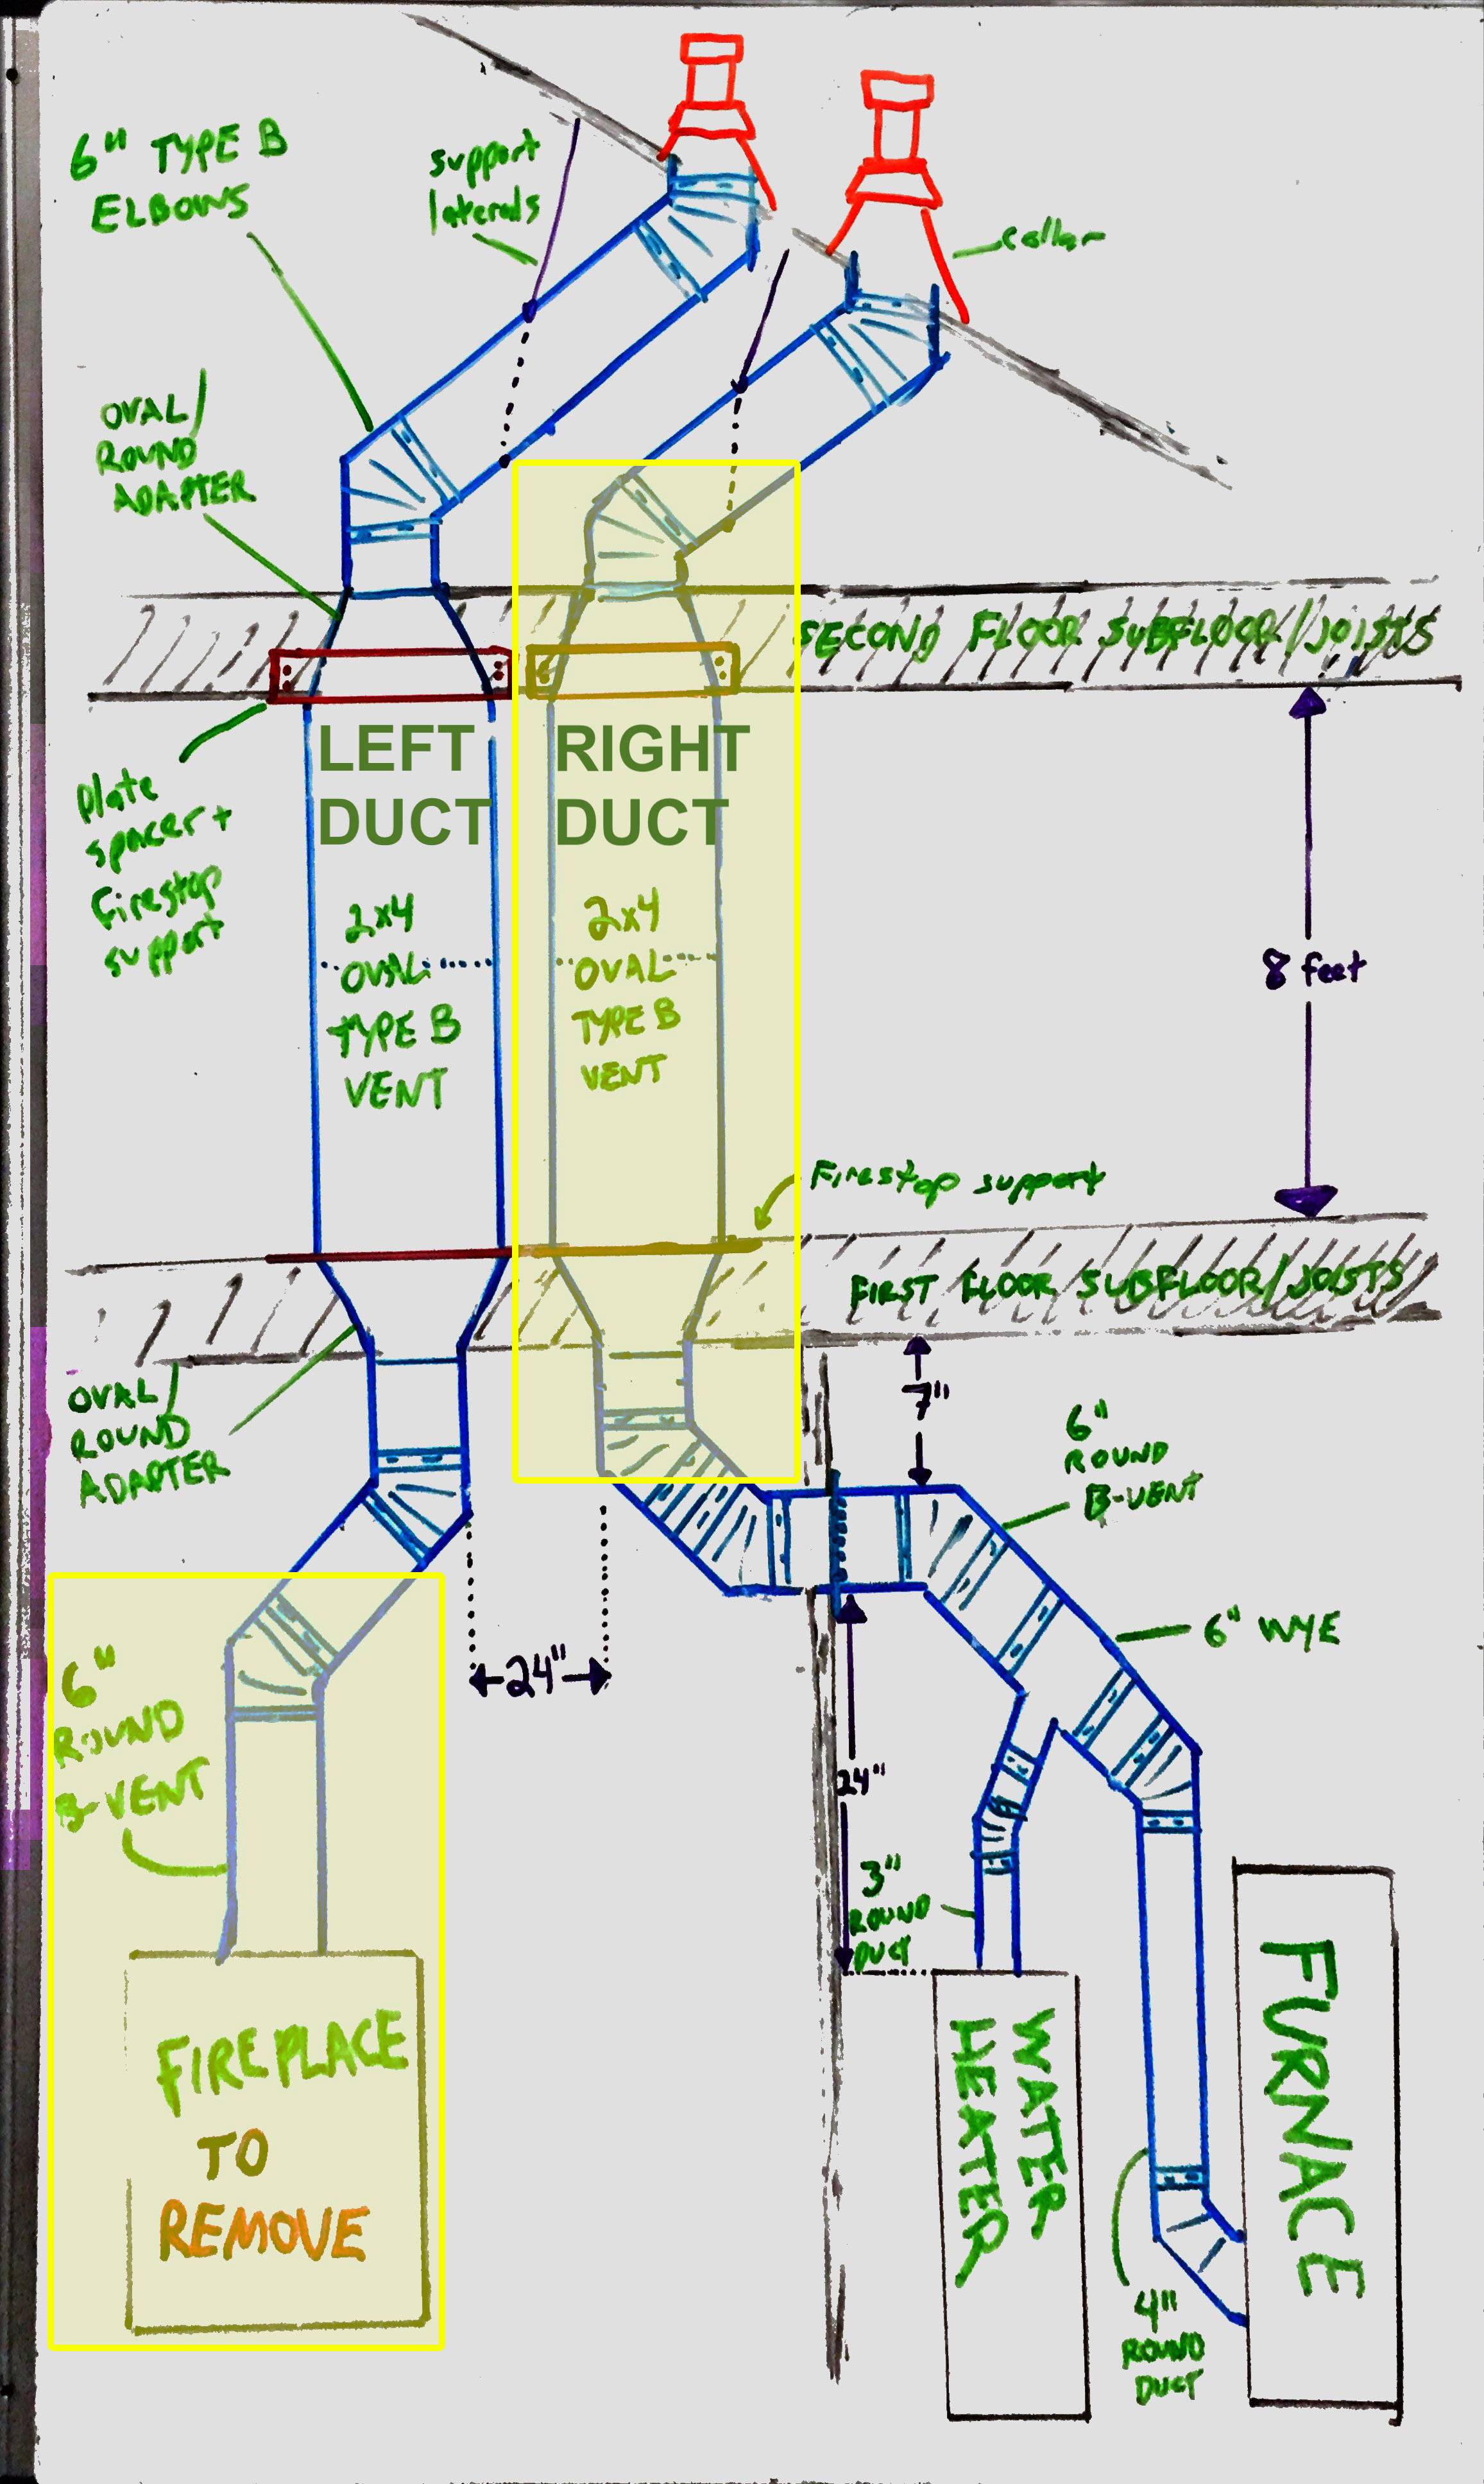 6" TYPE B
ELBOWS
support
laterals
collar
OVAL/
ROUND
ADAPTER
SECOND FLOOR SUBFLOOR/JOISTS
Plate
spacer +
Firestop
support
LEFT
DUCT
RIGHT
DUCT
2x4
OVAL
TYPE B
VENT
2x4
OVAL
TYPE B
VENT
8 feet
Firestop support
FIRST FLOOR SUBFLOOR/JOISTS
OVAL/
ROUND
ADAPTER
7"
6"
ROUND
B-VENT
6" WYE
24"
6"
ROUND
B-VENT
24"
3"
ROUND
DUCT
FIREPLACE
TO
REMOVE
WATER
HEATER
FURNACE
4"
ROUND
DUCT